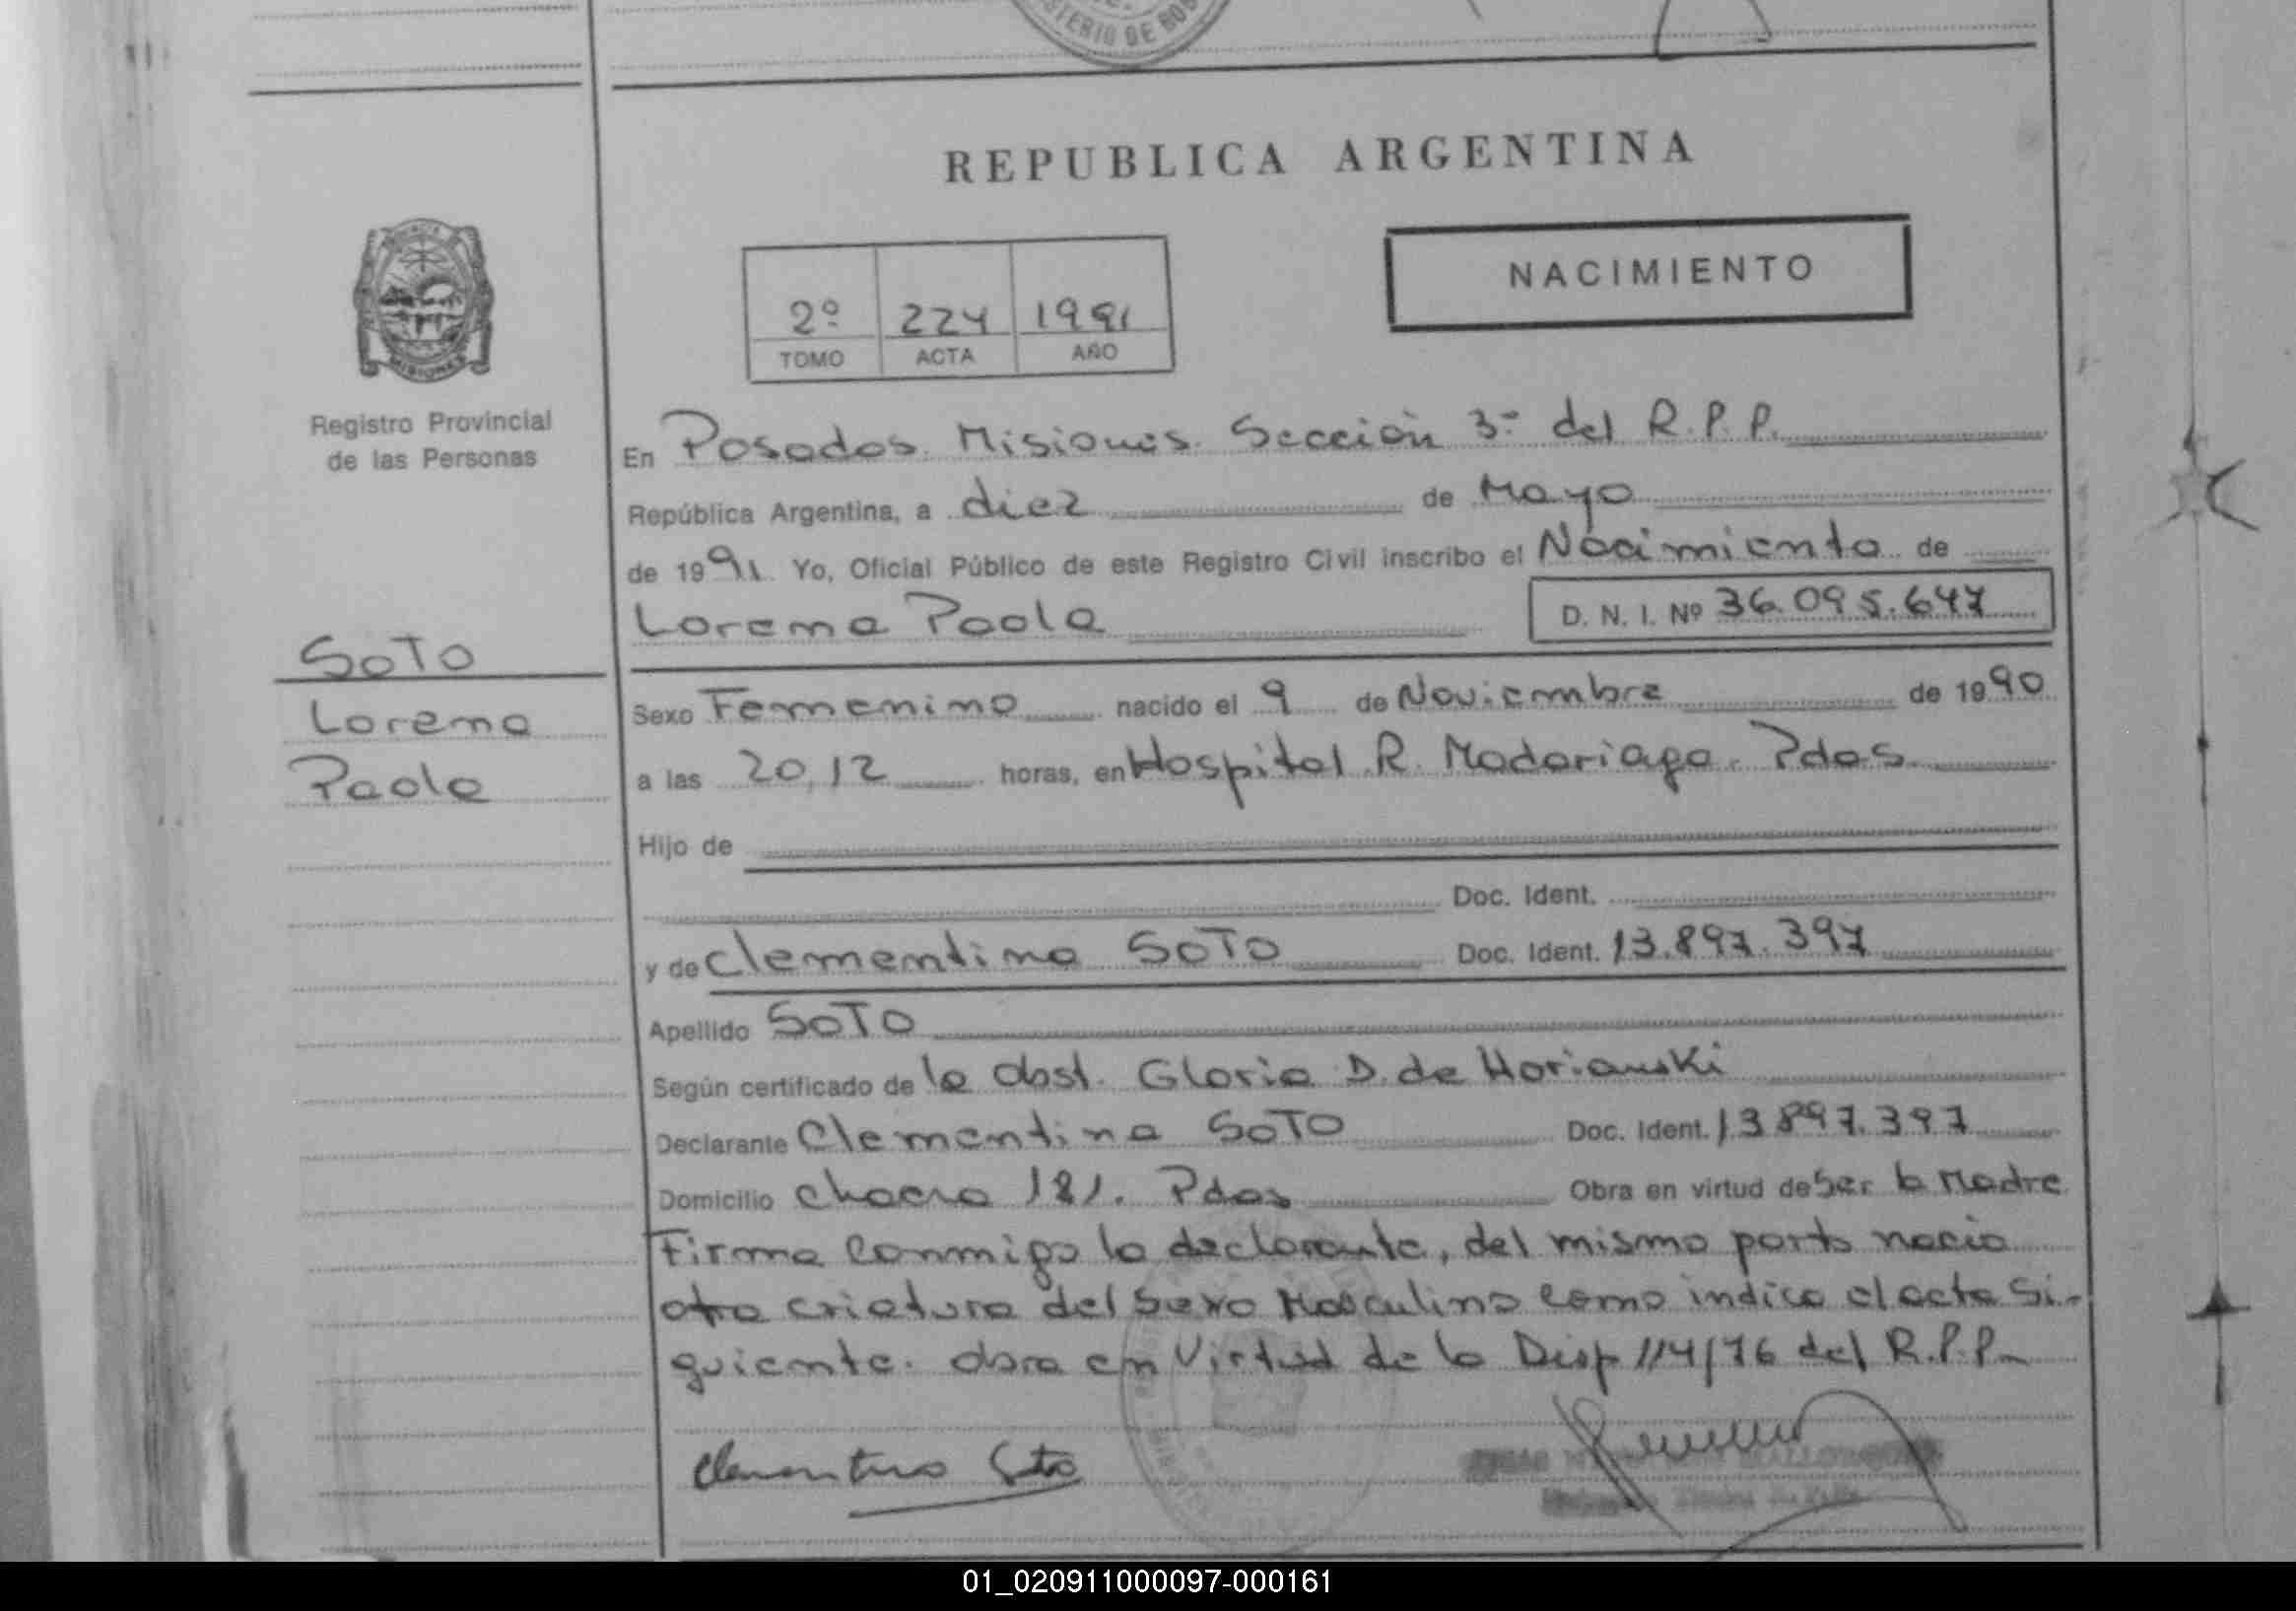 STERIO DE GOB
REPUBLICA ARGENTINA
NACIMIENTO
2º 224 1991
TOMO ACTA AÑO
MISIONES
Registro Provincial
de las Personas
SOTO
Lorena
Paola
En Posadas Misiones Sección 3ª del R.P.P.
República Argentina, a diez de Mayo
de 1991. Yo, Oficial Público de este Registro Civil inscribo el Nacimiento de
Lorena Paola D. N. I. Nº 36.095.647
Sexo Femenino nacido el 9 de Noviembre de 1990
a las 20,12 horas, en Hospital R. Madariaga. Pdas.
Hijo de
Doc. Ident.
y de Clementina SOTO Doc. Ident. 13.897.397
Apellido SOTO
Según certificado de la obst. Gloria D. de Horianski
Declarante Clementina SOTO Doc. Ident. 13897.397
Domicilio chacra 181. Pdas Obra en virtud de Ser la Madre
Firma conmigo la declarante, del mismo parto nacio
otra criatura del Sexo Masculino como indica el acta Si-
guiente. obra en Virtud de la Disp 114/76 del R.P.P.
Clementina Soto
01_020911000097-000161